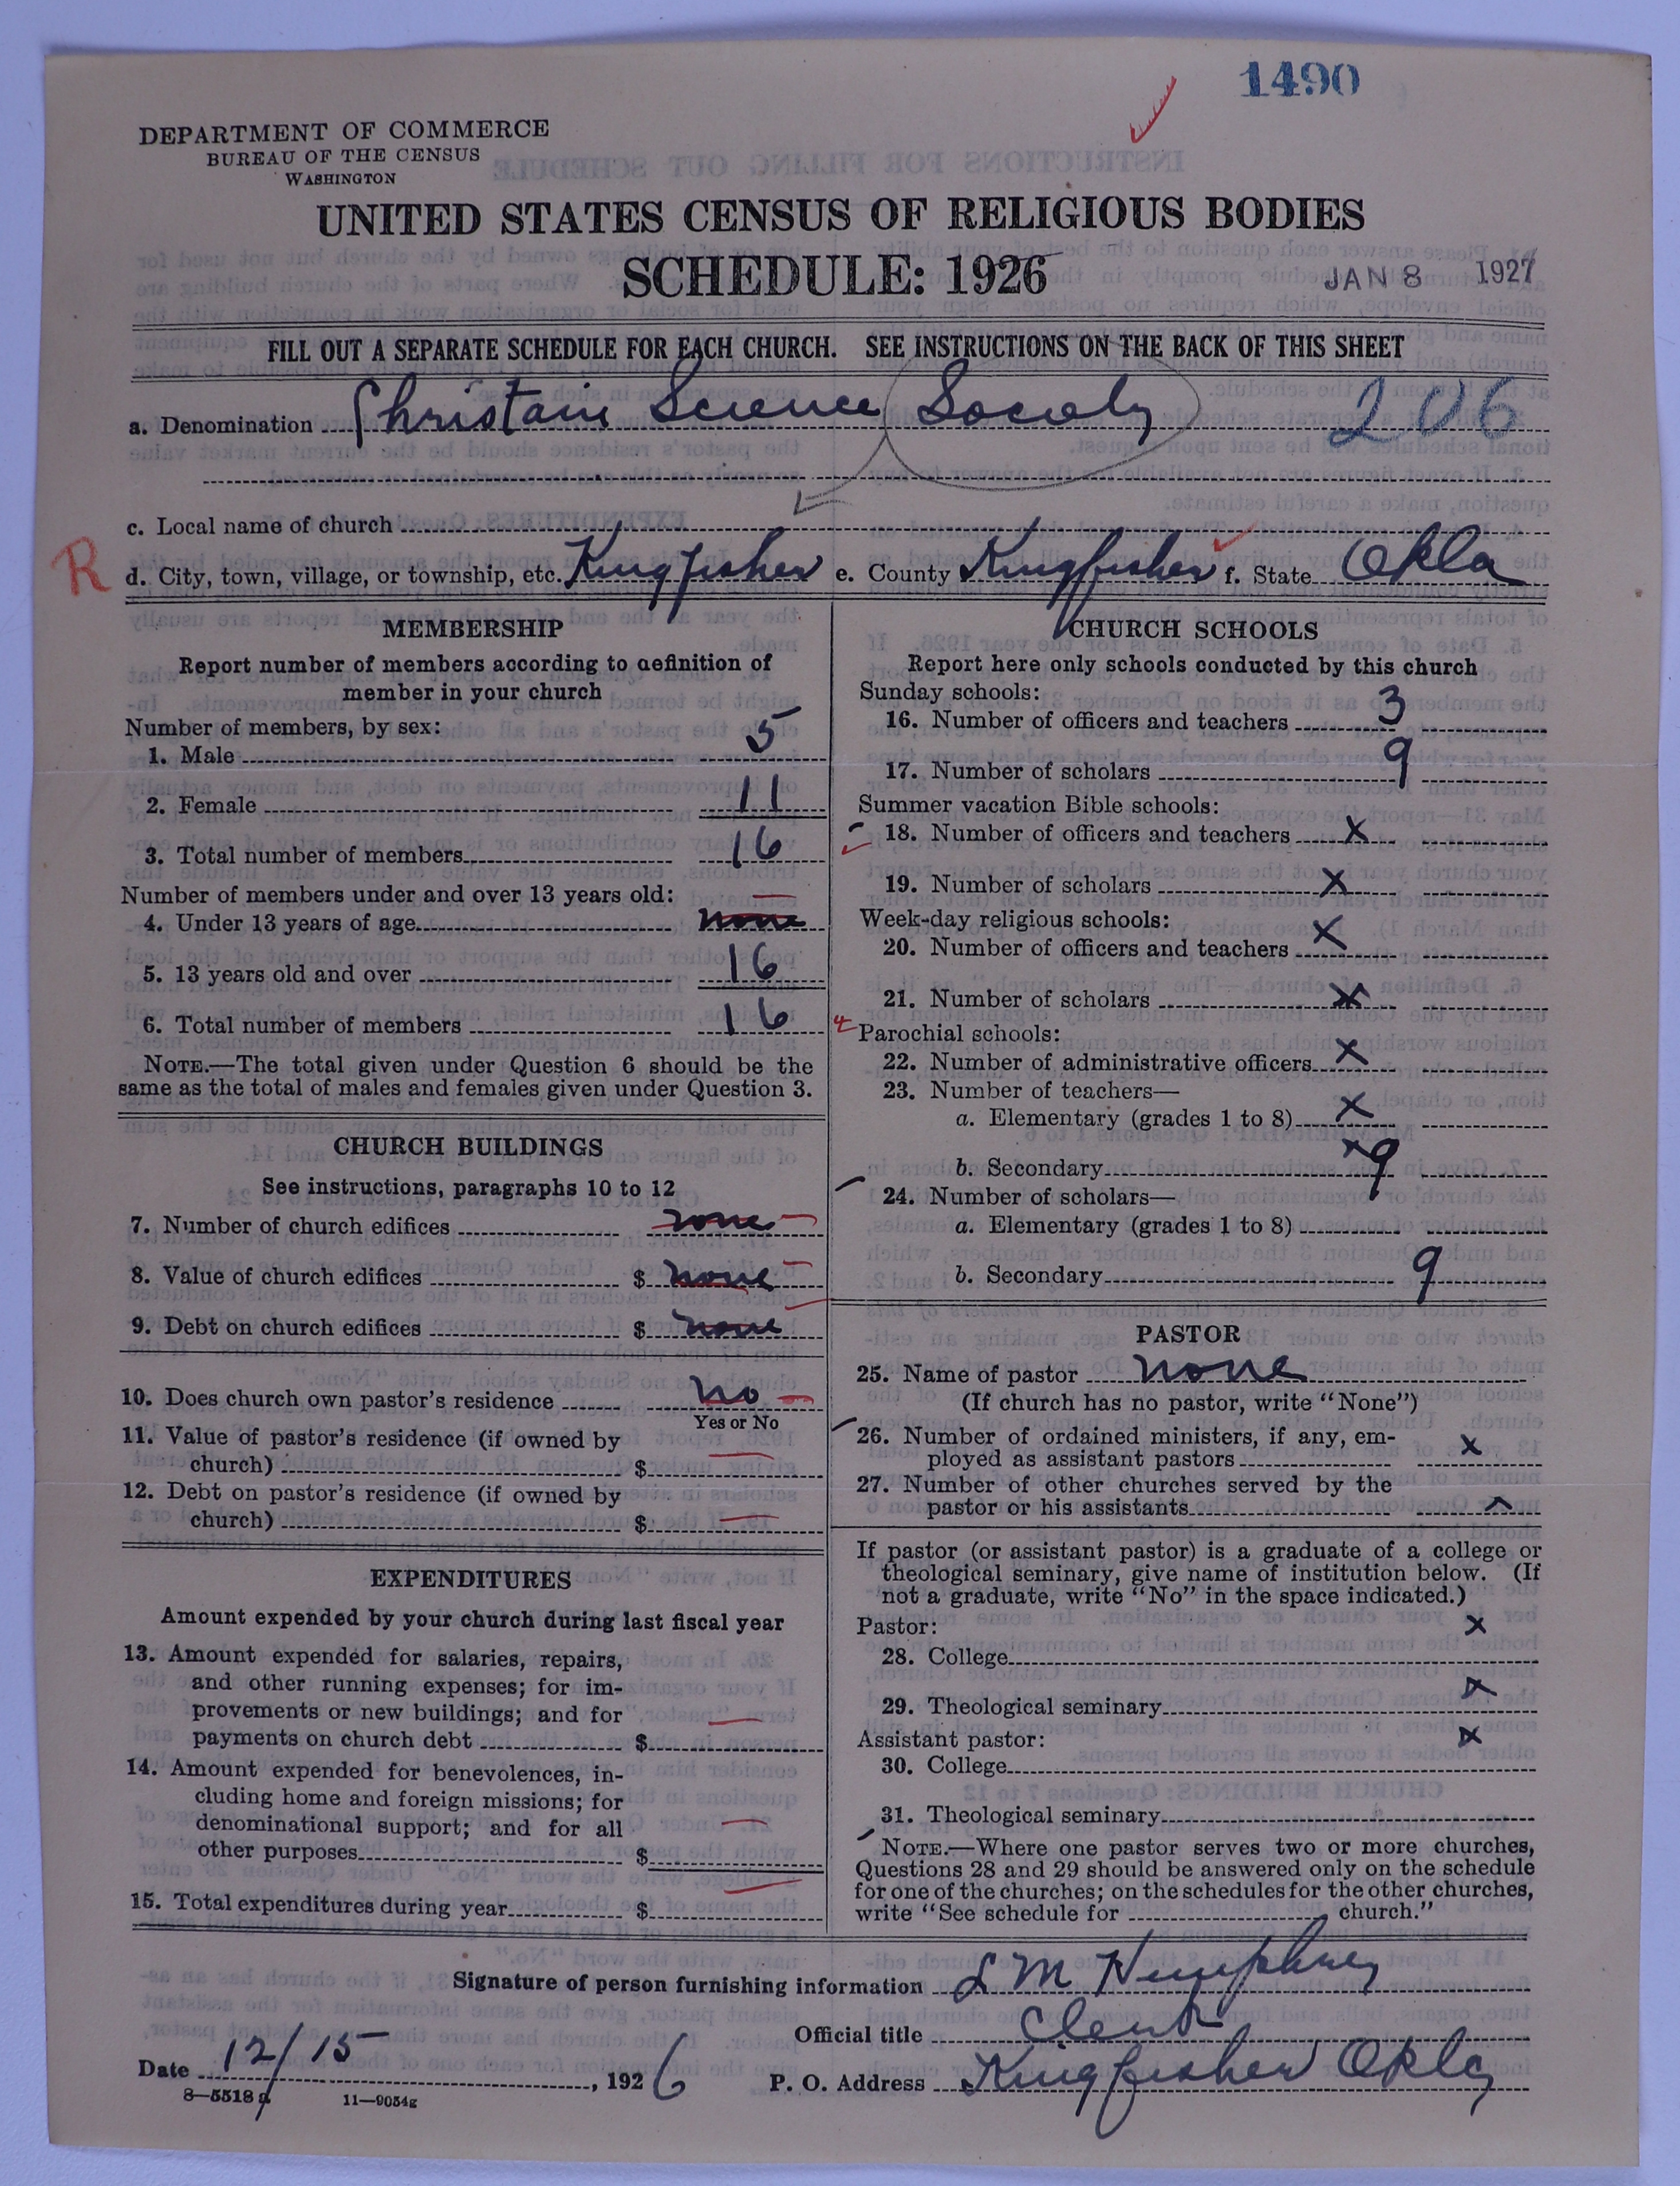 1490
DEPARTMENT OF COMMERCE
BUREAU OF THE CENSUS
WASHINGTON
UNITED STATES CENSUS OF RELIGIOUS BODIES
SCHEDULE: 1926
JAN 8 1927
FILL OUT A SEPARATE SCHEDULE FOR EACH CHURCH. SEE INSTRUCTIONS ON THE BACK OF THIS SHEET
a. Denomination Christain Science Society 206
c. Local name of church
R
d. City, town, village, or township, etc. Kingfisher e. County Kingfisher f. State Okla
MEMBERSHIP
Report number of members according to definition of
member in your church
Number of members, by sex:
1. Male 5
2. Female 11
3. Total number of members 16
Number of members under and over 13 years old:
4. Under 13 years of age none
5. 13 years old and over 16
6. Total number of members 16
NOTE.—The total given under Question 6 should be the
same as the total of males and females given under Question 3.
CHURCH BUILDINGS
See instructions, paragraphs 10 to 12
7. Number of church edifices none
8. Value of church edifices $ none
9. Debt on church edifices $ none
10. Does church own pastor's residence no
Yes or No
11. Value of pastor's residence (if owned by
church) $
12. Debt on pastor's residence (if owned by
church) $
EXPENDITURES
Amount expended by your church during last fiscal year
13. Amount expended for salaries, repairs,
and other running expenses; for im-
provements or new buildings; and for
payments on church debt $
14. Amount expended for benevolences, in-
cluding home and foreign missions; for
denominational support; and for all
other purposes $
15. Total expenditures during year $
CHURCH SCHOOLS
Report here only schools conducted by this church
Sunday schools:
16. Number of officers and teachers 3
17. Number of scholars 9
Summer vacation Bible schools:
18. Number of officers and teachers X
19. Number of scholars X
Week-day religious schools:
20. Number of officers and teachers X
21. Number of scholars X
Parochial schools:
22. Number of administrative officers X
23. Number of teachers—
a. Elementary (grades 1 to 8) X
b. Secondary X 9
24. Number of scholars—
a. Elementary (grades 1 to 8)
b. Secondary 9
PASTOR
25. Name of pastor none
(If church has no pastor, write "None")
26. Number of ordained ministers, if any, em-
ployed as assistant pastors X
27. Number of other churches served by the
pastor or his assistants X
If pastor (or assistant pastor) is a graduate of a college or
theological seminary, give name of institution below. (If
not a graduate, write "No" in the space indicated.)
Pastor: X
28. College
29. Theological seminary X
Assistant pastor: X
30. College
31. Theological seminary
NOTE.—Where one pastor serves two or more churches,
Questions 28 and 29 should be answered only on the schedule
for one of the churches; on the schedules for the other churches,
write "See schedule for church."
Signature of person furnishing information L M Humphrey
Official title Clerk
Date 12/15, 1926 P. O. Address Kingfisher Okla
8—5518 a 11—9054g